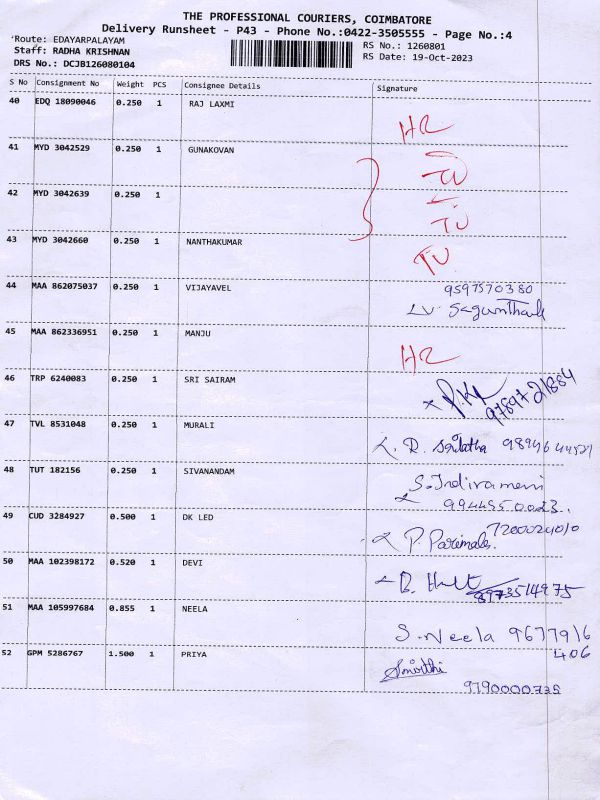 THE PROFESSIONAL COURIERS, COIMBATORE
Delivery Runsheet - P43 - Phone No.:0422-3505555 - Page No.:4
Route: EDAYARPALAYAM
Staff: RADHA KRISHNAN
DRS No.: DCJB126080104
RS No.: 1260801
RS Date: 19-Oct-2023
S No Consignment No Weight PCS Consignee Details Signature
40 EDQ 18090046 0.250 1 RAJ LAXMI
HR
41 MYD 3042529 0.250 1 GUNAKOVAN
TU
42 MYD 3042639 0.250 1
TU
43 MYD 3042660 0.250 1 NANTHAKUMAR
TU
44 MAA 862075037 0.250 1 VIJAYAVEL
9597570380
45 MAA 862336951 0.250 1 MANJU
HR
46 TRP 6240083 0.250 1 SRI SAIRAM
9789721884
47 TVL 8531048 0.250 1 MURALI
48 TUT 182156 0.250 1 SIVANANDAM
S. Indiramani
49 CUD 3284927 0.500 1 DK LED
7200024010
P. Parimala.
50 MAA 102398172 0.520 1 DEVI
8973514975
51 MAA 105997684 0.855 1 NEELA
S. Neela 9677916
406
52 GPM 5286767 1.500 1 PRIYA
9790000738